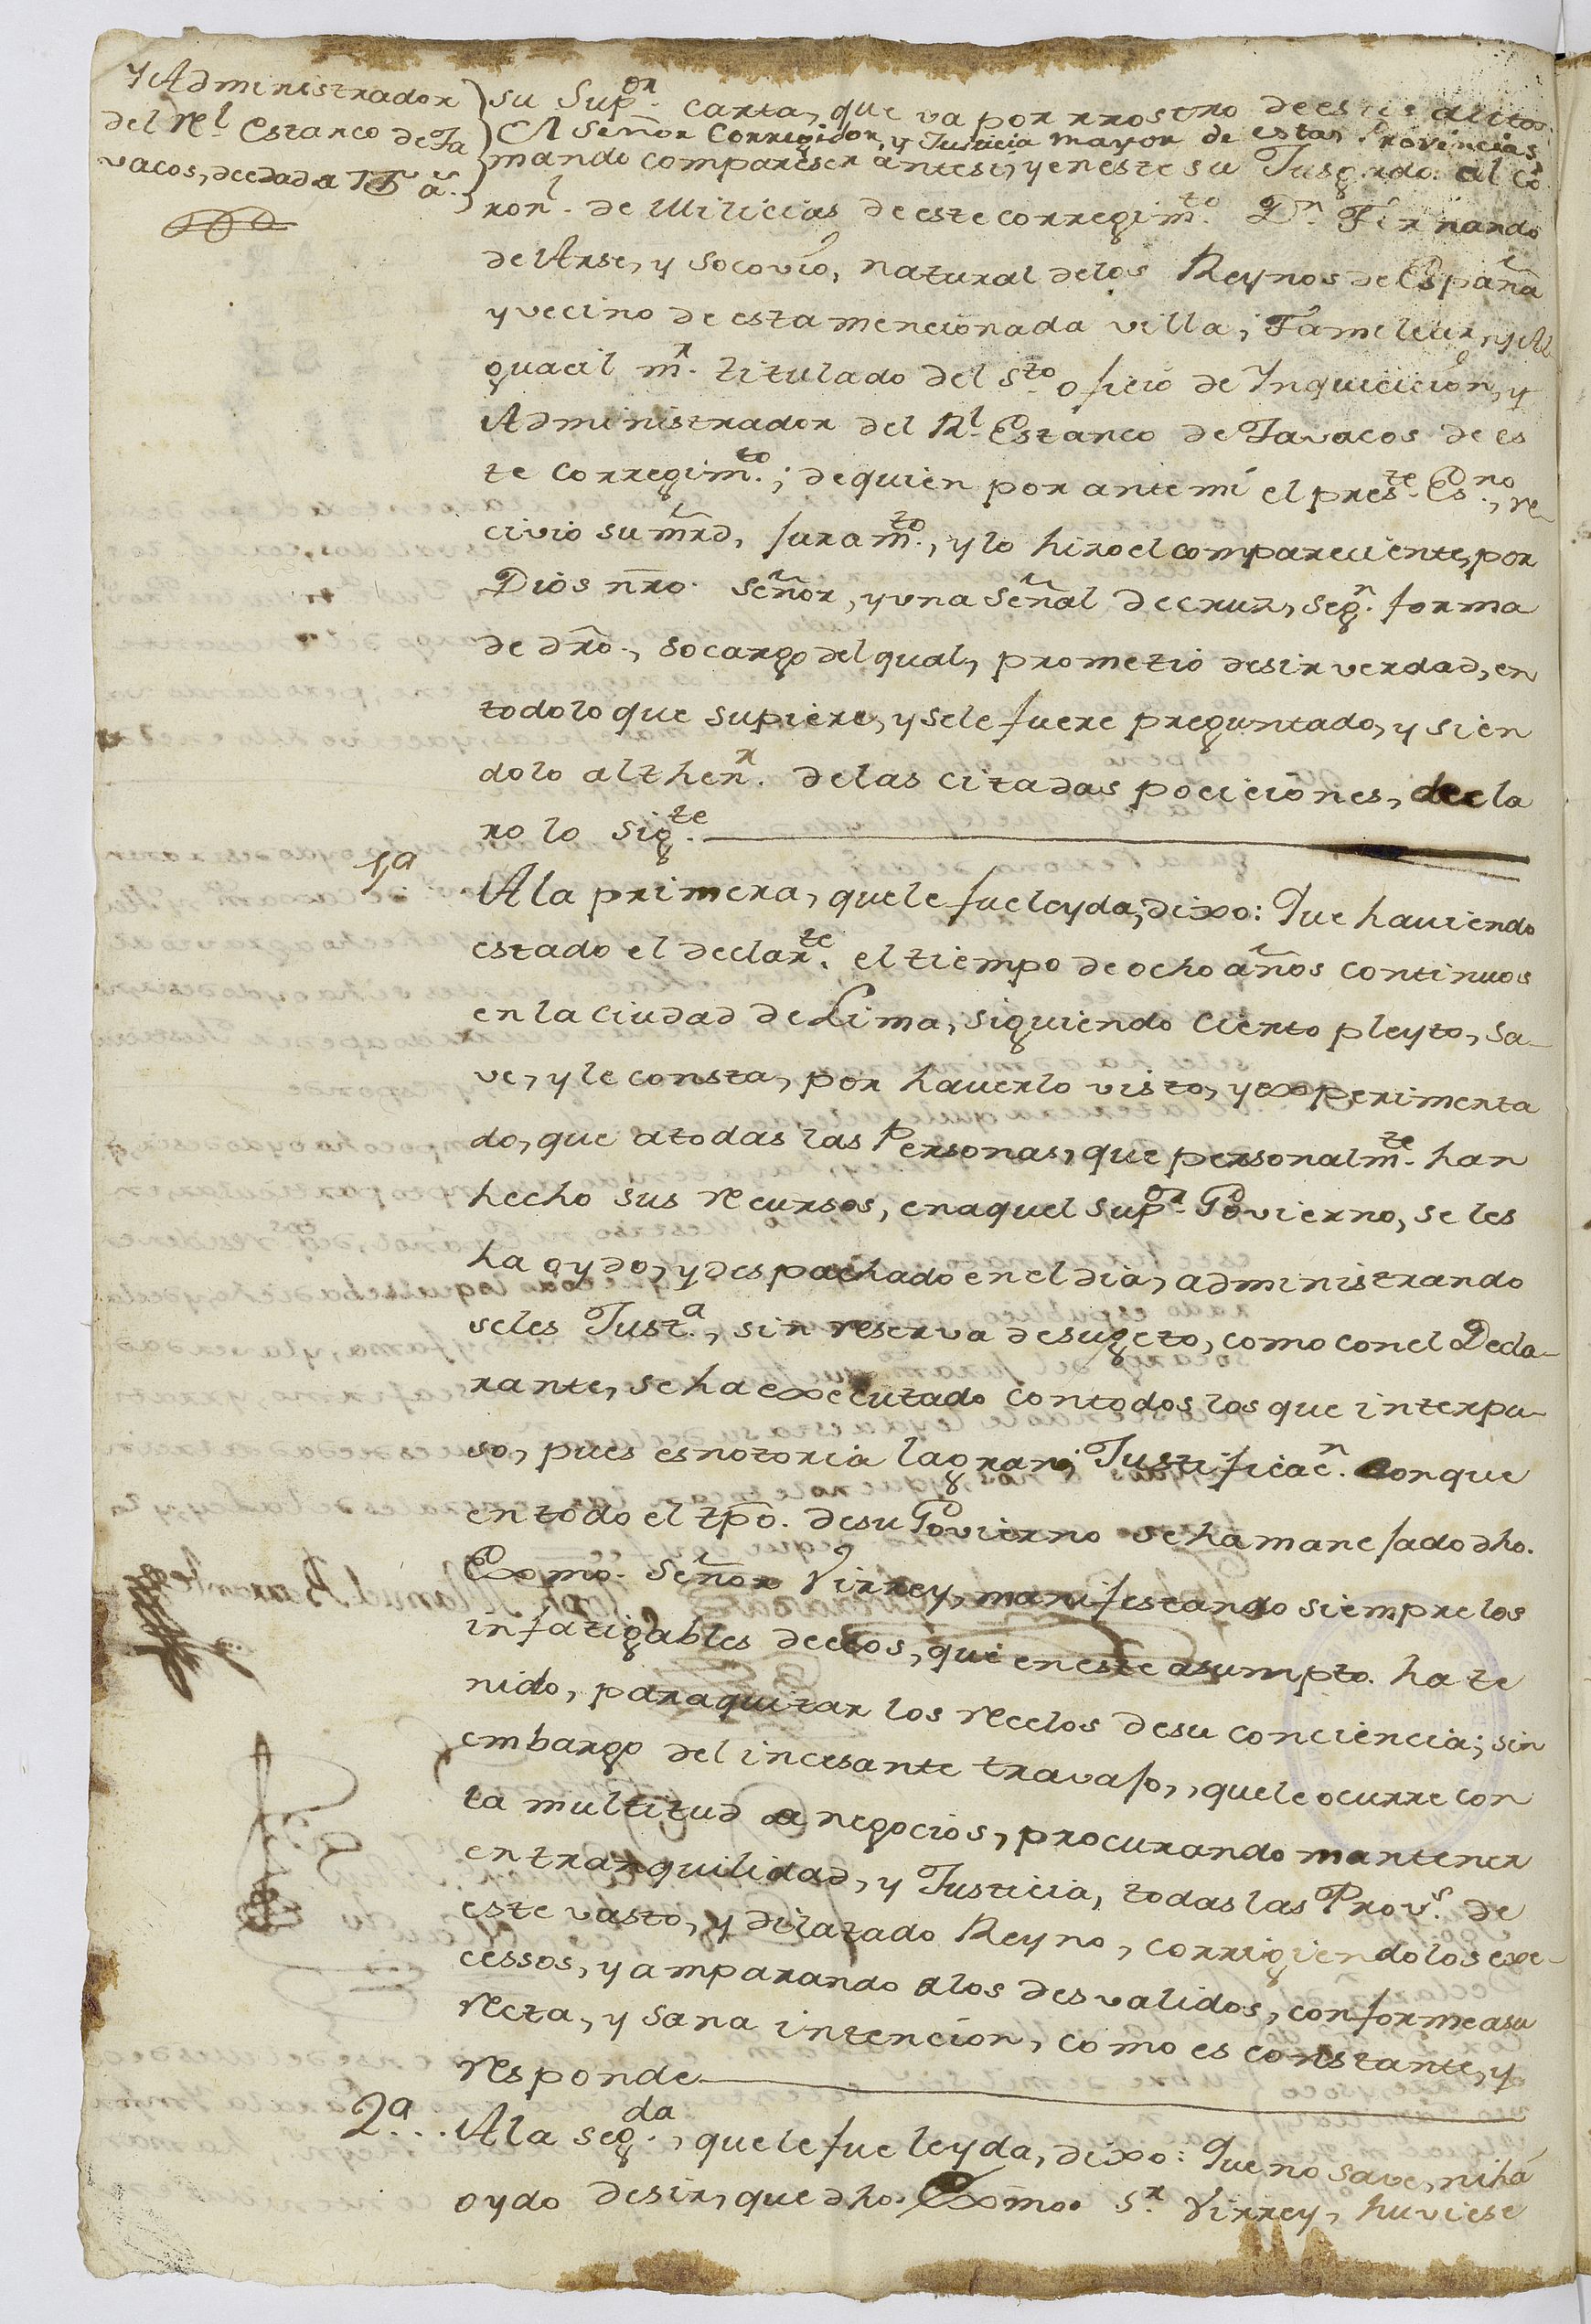 Y Administrador
del Rl. Estanco de Ta
vacos, de edad a 75 as.
su Supor. carta, que va por rrostro de estos autos
El Señor Corregidor, y Justicia mayor de estas Provincias,
mandó compareser antesi, y en este su Jusgado al Co
ronl. de Milicias de este corregimto. Dn. Fernando
de Arse, y Socovio, natural de los Reynos de España
y vecino de esta mencionada villa, Familiar, y Al
guacil mr. titulado del Sto. oficio de Inquicicion, y
Administrador del Rl. Estanco de Tavacos de es
te Corregimto.; de quien por ante mi el preste. Esno., re-
civio su mrd, juramto., y lo hizo el compareciente, por
Dios nro. Señor, y una Señal de cruz, segn. forma
de dro., socargo del qual, prometio desir verdad, en
todo lo que supiere, y se le fuere preguntado, y sien
dolo al thenr. de las citadas pociciones, decla
ro lo sigte.
1a
A la primera, que le fue leyda, dixo: Que haviendo
estado el declarte. el tiempo de ocho años continuos
en la ciudad de Lima, siguiendo cierto pleyto, sa-
ve, y le consta, por haverlo visto, y experimenta
do, que a todas las Personas, que personalmte. han
hecho sus recursos, en aquel Supor. Govierno, se les
ha oydo, y despachado en el dia, administrando
seles Justa., sin reserva de sugeto, como con el Decla-
rante, se ha executado con todos los que interpu-
so, pues es notoria la gran Justificacn. con que
en todo el tpo. de su Govierno se ha manejado dho.
Exmo. Señor Virrey, manifestando siempre los
infatigables deceos, que en este asumpto. ha te
nido, para quitar los recelos de su conciencia; sin
embargo del incesante travajo, que le ocurre con
la multitud a negocios, procurando mantener
en tranquilidad, y Justicia, todas las Provs. de
este vasto, y dilatado Reyno, corrigiendo los exe-
cessos, y amparando a los desvalidos, conforme a su
recta, y sana intencion, como es constante, y
responde
2a...
A la segda., que le fue leyda, dixo: Que no save, ni há
oydo desir, que dho. Exmo. Sr. Virrey, huviese